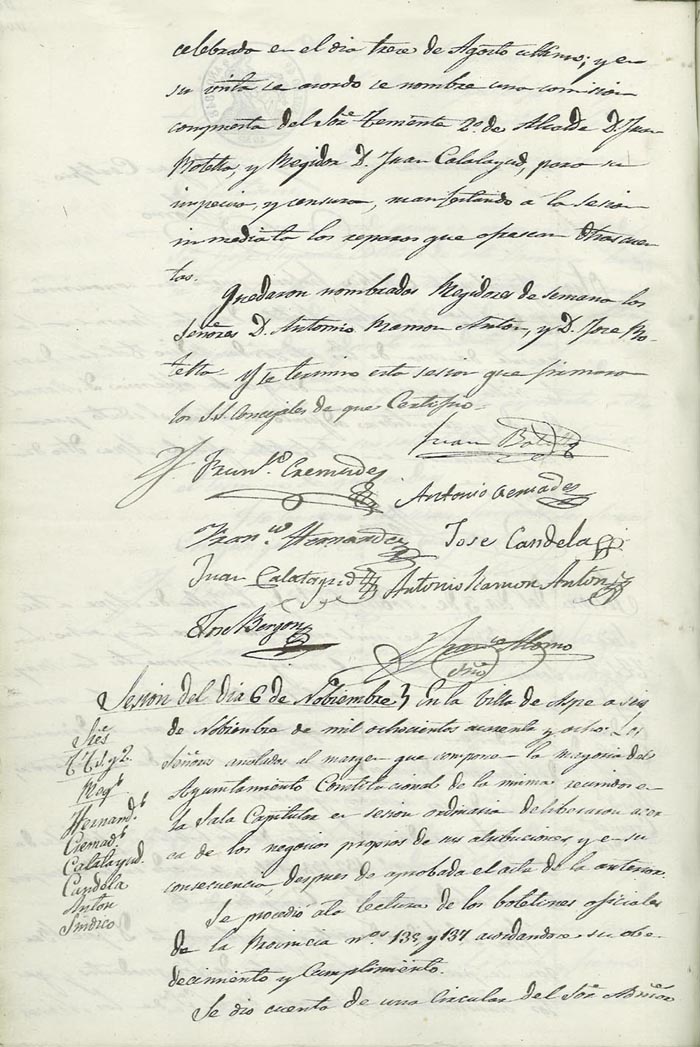 celebrada en el dia trece de Agosto ultimo; y en
su vista se acordo se nombre una comision
compuesta del Sor. Teniente 2º. de Alcalde D. Juan
Botella, y Regidor D. Juan Calatayud, para su
inspeccion, y censura, manifestando á la sesion
inmediata los reparos que ofrescan dhas cuen
tas.
Quedaron nombrados Regidores de semana los
Señores D. Antonio Ramon Anton, y D. Jose Bo-
tella. Y se termino esta sesion que firmaron
los S.S. Concejales de que Certifico.
Juan Botella
Franco. Cremades
Antonio Cremades
Franco. Hernandez
Jose Candela
Juan Calatayud
Antonio Ramon Anton
Jose Bergon
Franco Alomo
Srio
Sesion del dia 6 de Nobiembre } En la Villa de Aspe a seis
de Nobiembre de mil ochocientos cuarenta y ocho: Los
Señores anotados al margen que componen la mayoria del
Ayuntamiento Constitucional de la misma reunidos en
la Sala Capitular en sesion ordinaria deliberaron acer
ca de los negocios propios de sus atribuciones y en su
consecuencia, despues de aprobada el acta de la anterior.
Sres
TT. 1. y 2.
Regs
Hernandz
Cremads
Calatayud.
Candela
Anton
Sindico
Se procedió á la lectura de los boletines oficiales
de la Provincia nos. 133 y 134 acordandose su obe-
decimiento y Cumplimiento.
Se dio cuenta de una Circular del Sor. Admor